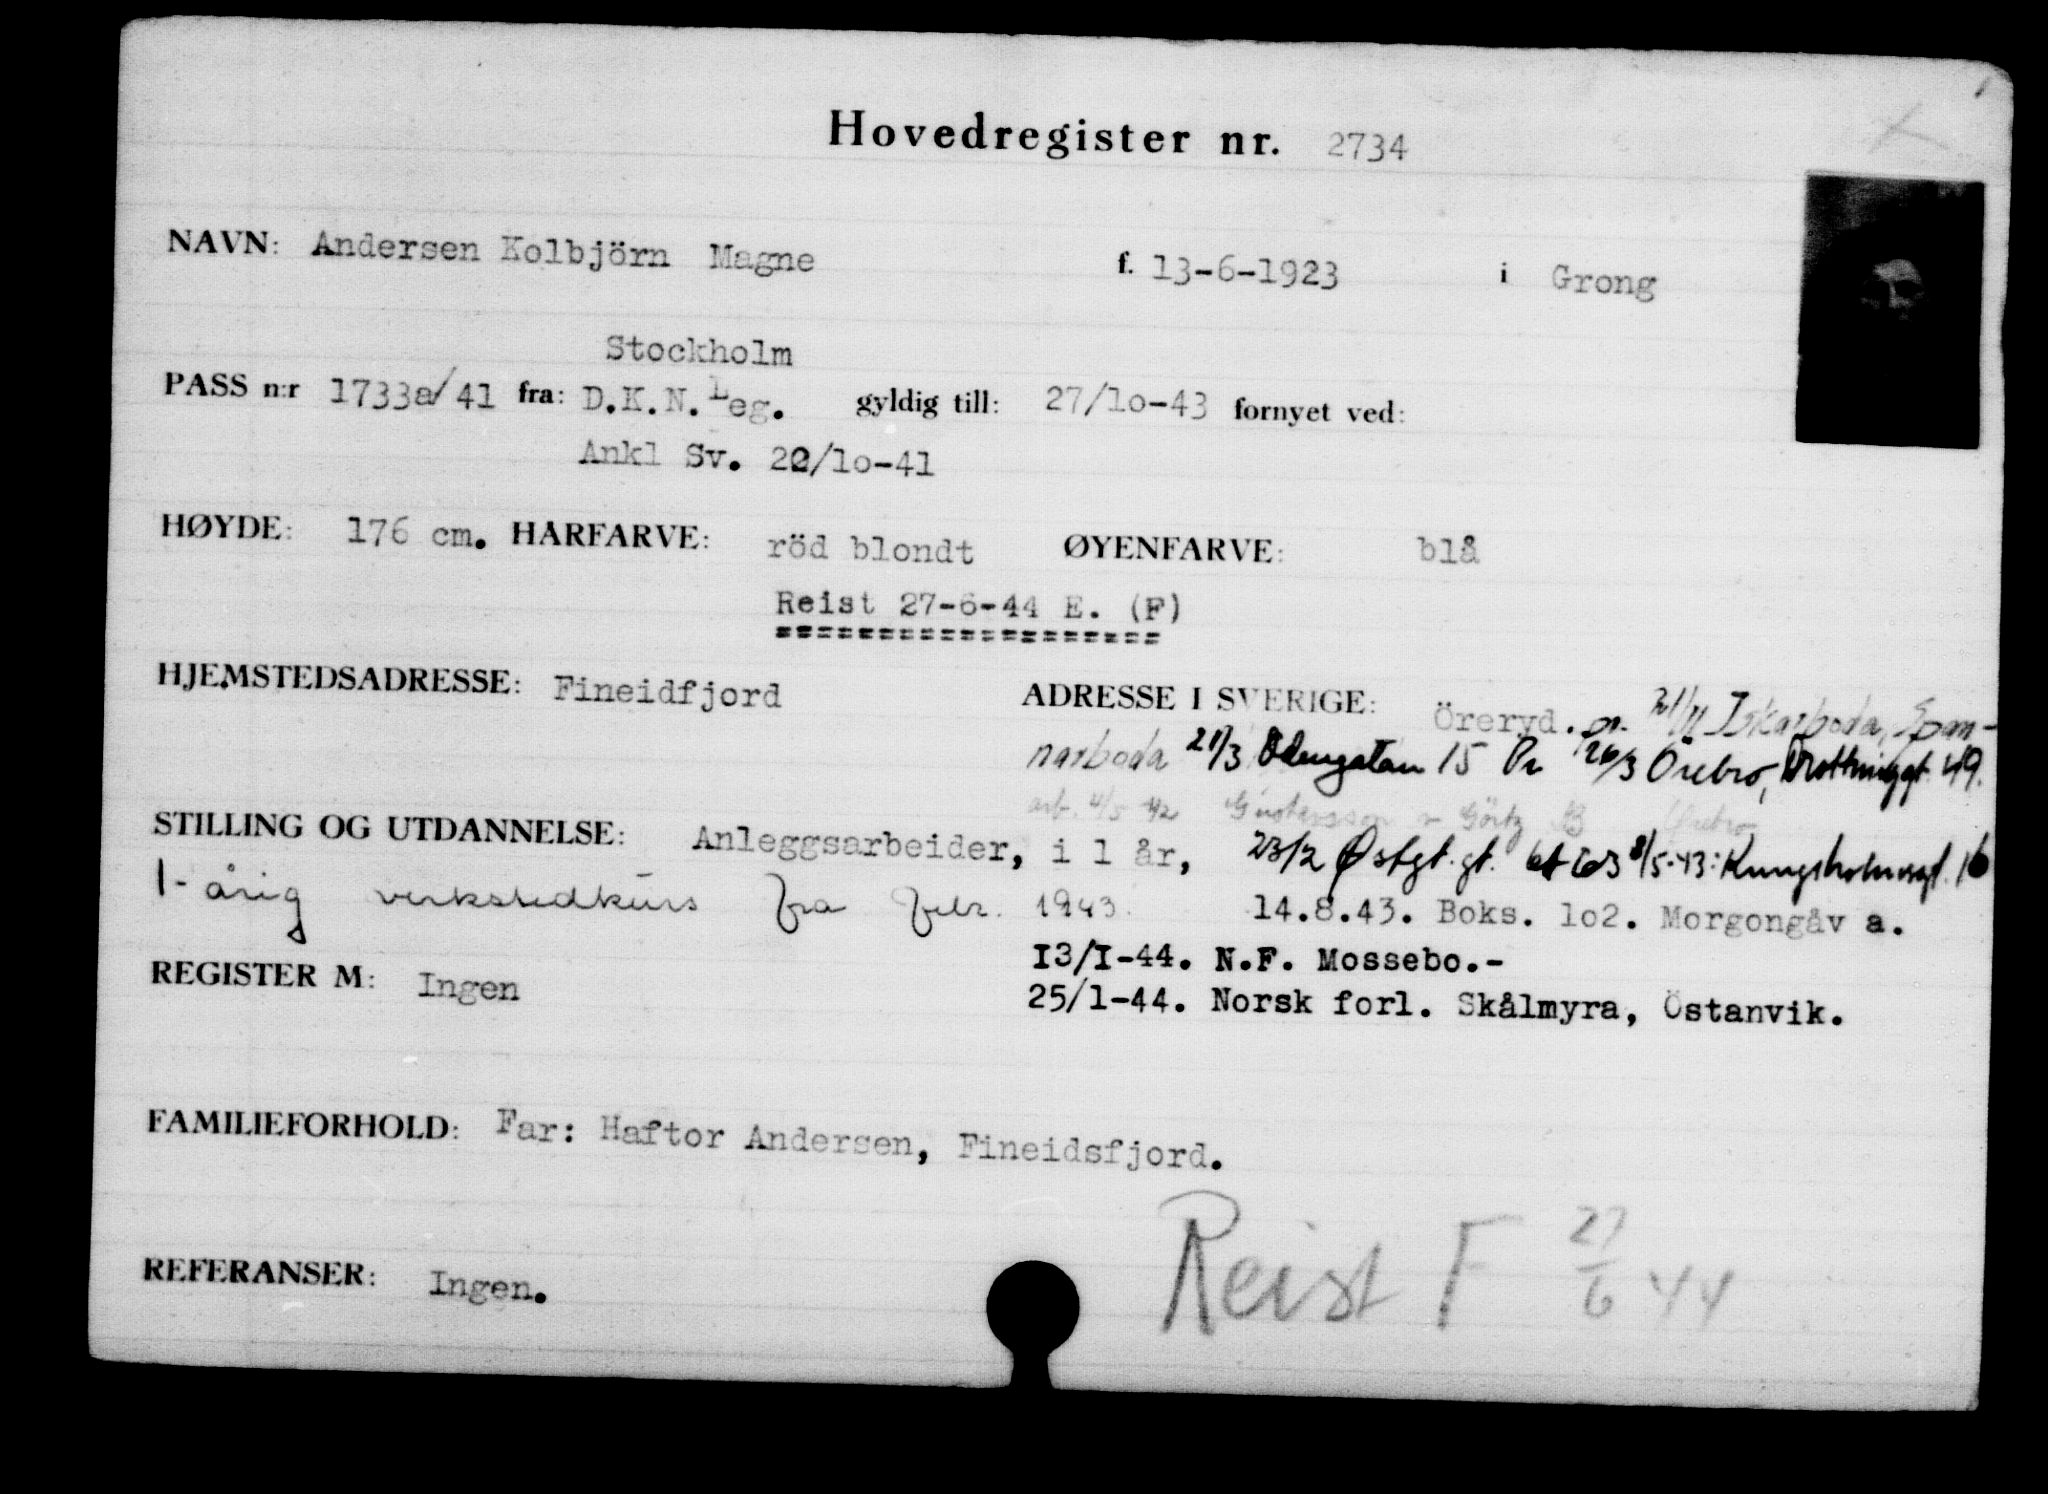 Hovedregister nr. 2734
NAVN: Andersen Kolbjörn Magne f. 13-6-1923 i Grong
Stockholm
PASS n:r 1733a/41 fra: D.K.N.Leg. gyldig till: 27/lo-43 fornyet ved:
Ankl Sv. 20/lo-41
HØYDE: 176 cm. HÅRFARVE: röd blondt ØYENFARVE: blå
Reist 27-6-44 E. (F)
===================
HJEMSTEDSADRESSE: Fineidfjord
ADRESSE I SVERIGE: Öreryd. Iskarboda, Span-
narboda 21/3 Odengatan 15 26/3 Örebro, Drottninggt. 49.
arb. 4/5 42 Örebro
STILLING OG UTDANNELSE: Anleggsarbeider, i 1 år,
23/2 Østgt.gt. 8/5-43: Kungsholmsgt. 16
1-årig verkstedkurs fra febr. 1943.
14.8.43. Boks. lo2. Morgongåv a.
I3/I-44. N.F. Mossebo.-
REGISTER M: Ingen
25/1-44. Norsk forl. Skålmyra, Östanvik.
FAMILIEFORHOLD: Far: Haftor Andersen, Fineidsfjord.
Reist F 27/6 44
REFERANSER: Ingen.